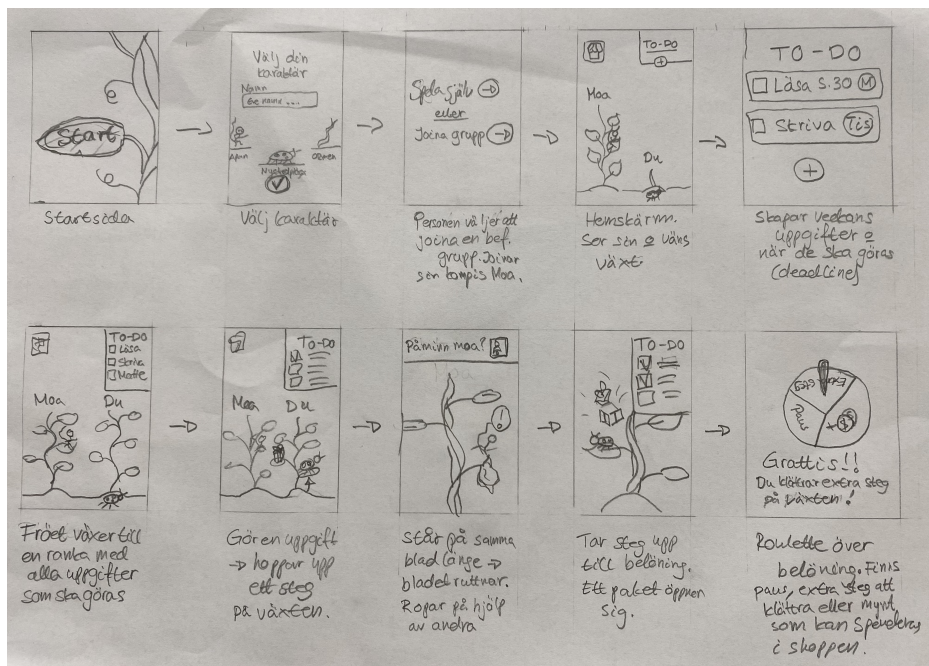 Start
Startsida
Välj din
karaktär
Namn
Apan
Nyckelpiga
Ormen
Välj karaktär
Spela själv
eller
Joina grupp
Personen väljer att
joina en bef.
grupp. Joinar
sin kompis Moa.
TO-DO
Moa
Du
Hemskärm.
Ser sin o väns
växt
TO-DO
Läsa S.30 M
Skriva Tis
Skapar veckans
uppgifter o
när de ska göras
(deadline)
TO-DO
Läsa
Skriva
Matte
Moa Du
Fröet växer till
en ranka med
alla uppgifter
som ska göras
TO-DO
Moa Du
Gör en uppgift
→ hoppar upp
ett steg
på växten.
Påminn moa?
!
Står på samma
blad länge →
bladet ruttnar.
Ropar på hjälp
av andra
TO-DO
Tar steg upp
till belöning.
Ett paket öppnar
sig.
Paus
Grattis!!
Du klättrar extra steg
på växten!
Roulette över
belöning. Finns
paus, extra steg att
klättra eller mynt
som kan spenderas
i shoppen.